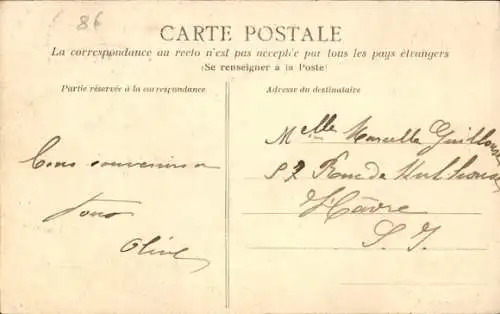 86
CARTE POSTALE
La correspondance au recto n'est pas acceptée par tous les pays étrangers
(Se renseigner à la Poste)
Partie réservée à la correspondance
Adresse du destinataire
Bons souvenirs a
tous
Melle Marcelle
52 Rue de Mulhouse
Havre
S. I.